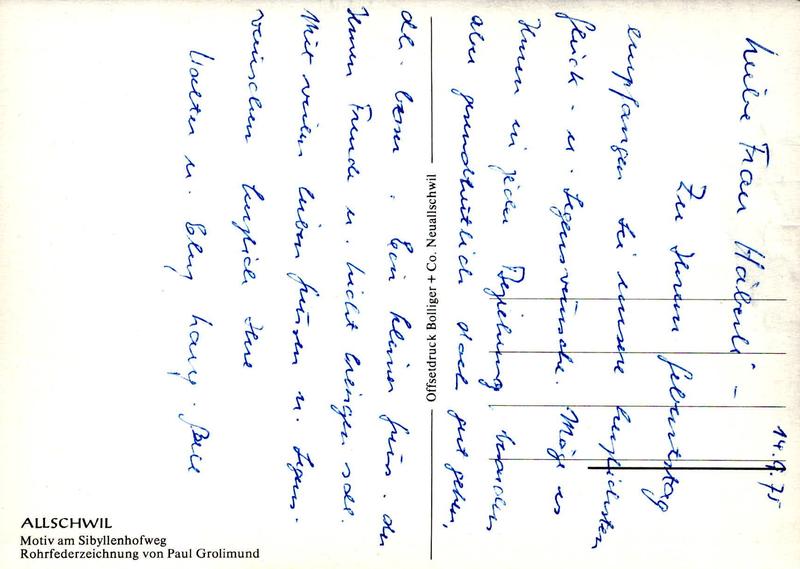 14.9.75
Liebe Frau Häberli –
Zu Ihrem Geburtstag
empfangen Sie unsere herzlichsten
Glück- u. Segenswünsche. Möge es
Ihnen in jeder Beziehung, besonders
aber gesundheitlich stets gut gehen,
d.h. besser. Ein kleiner Gruss, der
Ihnen Freude u. Licht bringen soll.
Mit vielen lieben Grüssen u. Segens-
wünschen herzlich Ihre
Walter u. Elsy
Offsetdruck Bolliger + Co. Neuallschwil
ALLSCHWIL
Motiv am Sibyllenhofweg
Rohrfederzeichnung von Paul Grolimund